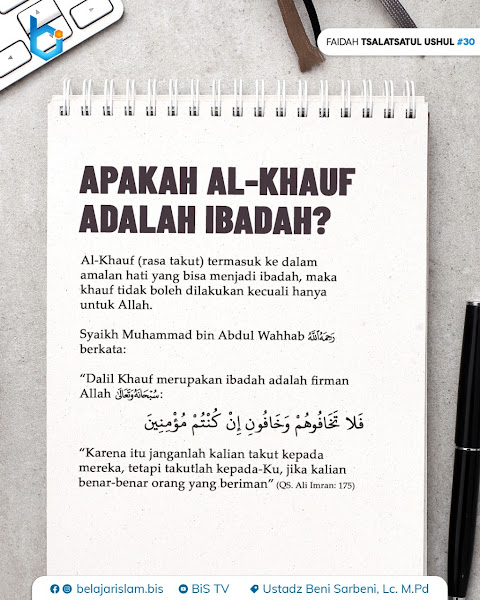 FAIDAH TSALATSATUL USHUL #30
APAKAH AL-KHAUF
ADALAH IBADAH?
Al-Khauf (rasa takut) termasuk ke dalam
amalan hati yang bisa menjadi ibadah, maka
khauf tidak boleh dilakukan kecuali hanya
untuk Allah.
Syaikh Muhammad bin Abdul Wahhab رَحِمَهُ اللهُ
berkata:
“Dalil Khauf merupakan ibadah adalah firman
Allah سُبْحَانَهُ وَتَعَالَى:
فَلَا تَخَافُوهُمْ وَخَافُونِ إِنْ كُنْتُمْ مُؤْمِنِينَ
“Karena itu janganlah kalian takut kepada
mereka, tetapi takutlah kepada-Ku, jika kalian
benar-benar orang yang beriman” (QS. Ali Imran: 175)
belajarislam.bis BiS TV Ustadz Beni Sarbeni, Lc. M.Pd